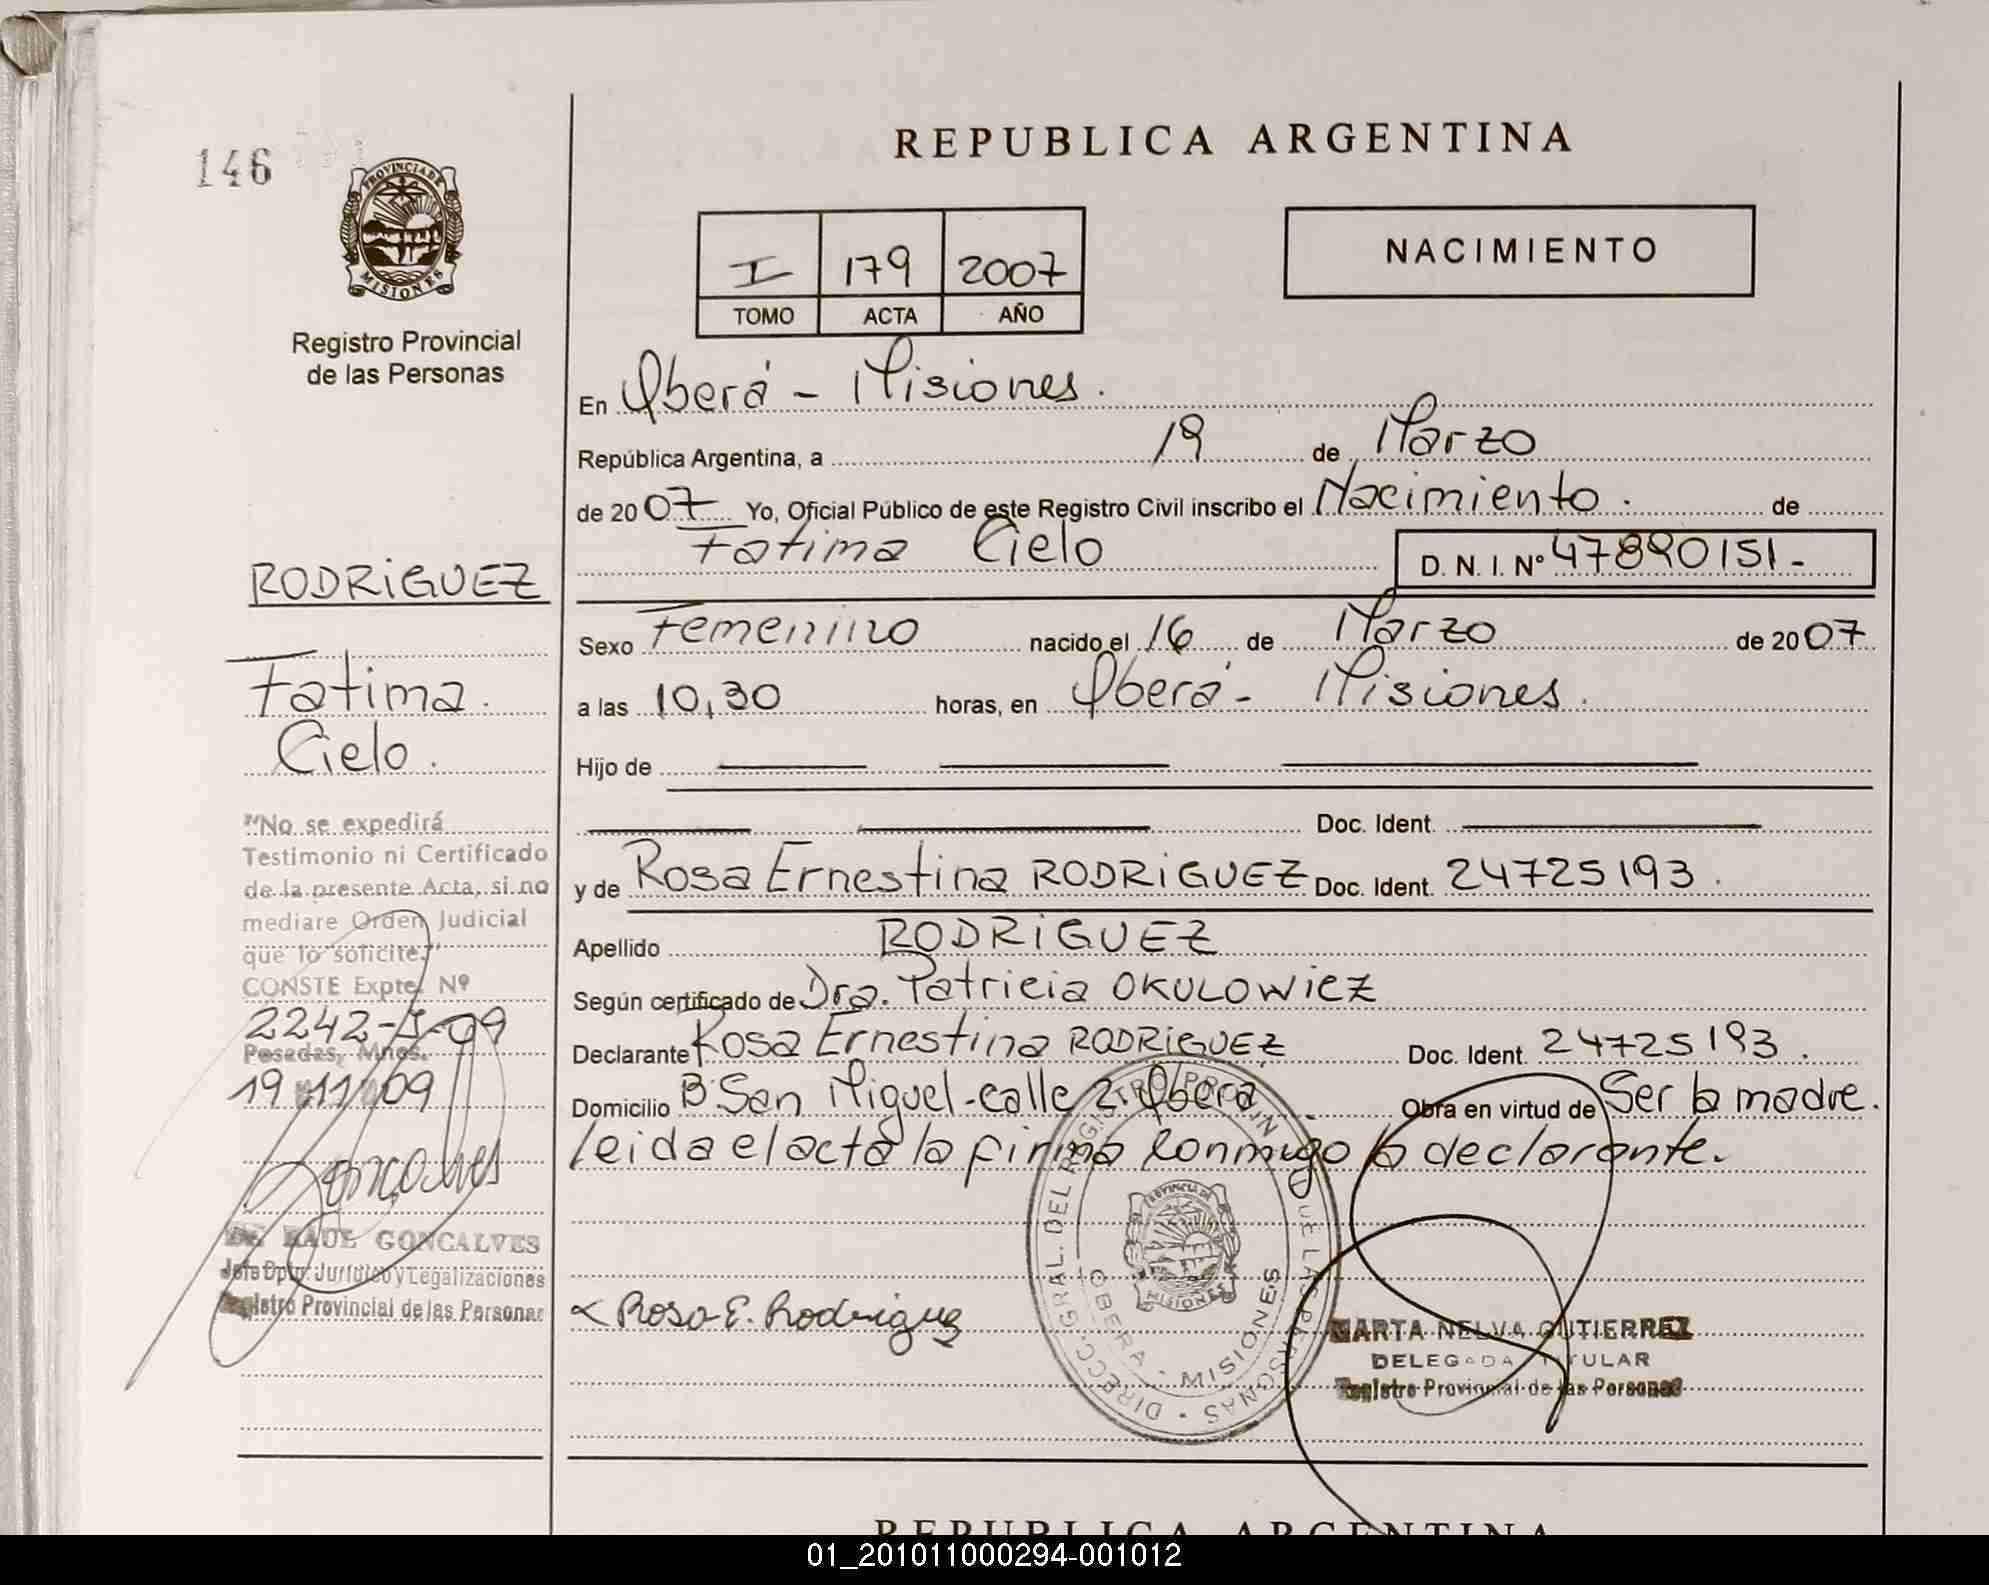 146
PROVINCIA DE
MISIONES
Registro Provincial
de las Personas
REPUBLICA ARGENTINA
I 179 2007
TOMO ACTA AÑO
NACIMIENTO
En Oberá - Misiones.
República Argentina, a 19 de Marzo
de 2007 Yo, Oficial Público de este Registro Civil inscribo el Nacimiento. de
Fatima Cielo D. N. I. Nº 47890151-
Sexo Femenino nacido el 16 de Marzo de 2007
a las 10,30 horas, en Oberá - Misiones.
Hijo de
Doc. Ident.
y de Rosa Ernestina RODRIGUEZ Doc. Ident. 24725193.
Apellido RODRIGUEZ
Según certificado de Dra. Patricia OKULOWIEZ
Declarante Rosa Ernestina RODRIGUEZ Doc. Ident. 24725193.
Domicilio Bº San Miguel - calle 2 - Oberá Obra en virtud de Ser la madre.
leida el acta la firma conmigo la declarante.
Rosa E. Rodriguez
DIRECC. GRAL. DEL REGISTRO PROVINCIAL DE LAS PERSONAS
PROVINCIA DE
MISIONES
OBERA - MISIONES
MARTA NELVA GUTIERREZ
DELEGADA TITULAR
Registro Provincial de las Personas
RODRIGUEZ
Fatima.
Cielo.
"No se expedirá
Testimonio ni Certificado
de la presente Acta, si no
mediare Orden Judicial
que lo solicite."
CONSTE Expte. Nº
2242-J-09
Posadas, Mnes.
19 11 09
Goncalves
Dr. RAUL GONCALVES
Jefe Dpto. Jurídico y Legalizaciones
Registro Provincial de las Personas
REPUBLICA ARGENTINA
01_201011000294-001012